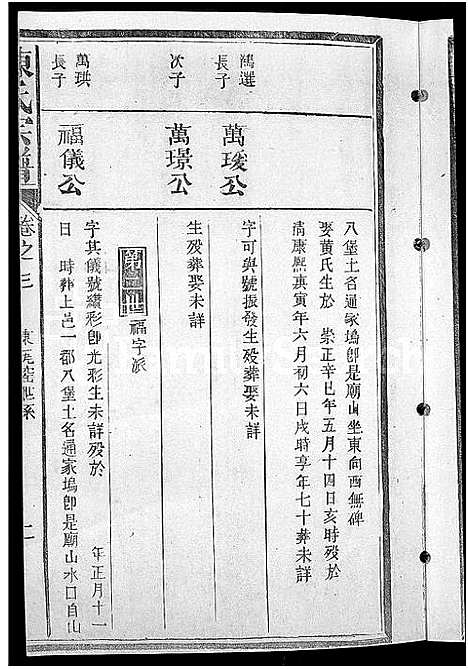 八堡土名通家塢卽是廟山坐東向西無碑
娶黄氏生於 崇正辛巳年五月十四日亥時殁於
清康熙寅年六月初六日戌時享年七十葬未詳
鴻選
長子
萬琁公
字可與號振發生殁葬娶未詳
次子
萬璟公
生殁葬娶未詳
福字派
萬珙
長子
福儀公
字其儀號繼彩卽光彩生未詳殁於 年正月十一
日 時葬上邑一都八堡土名通家塢卽是廟山水口自山
陳氏宗譜
卷之三
二